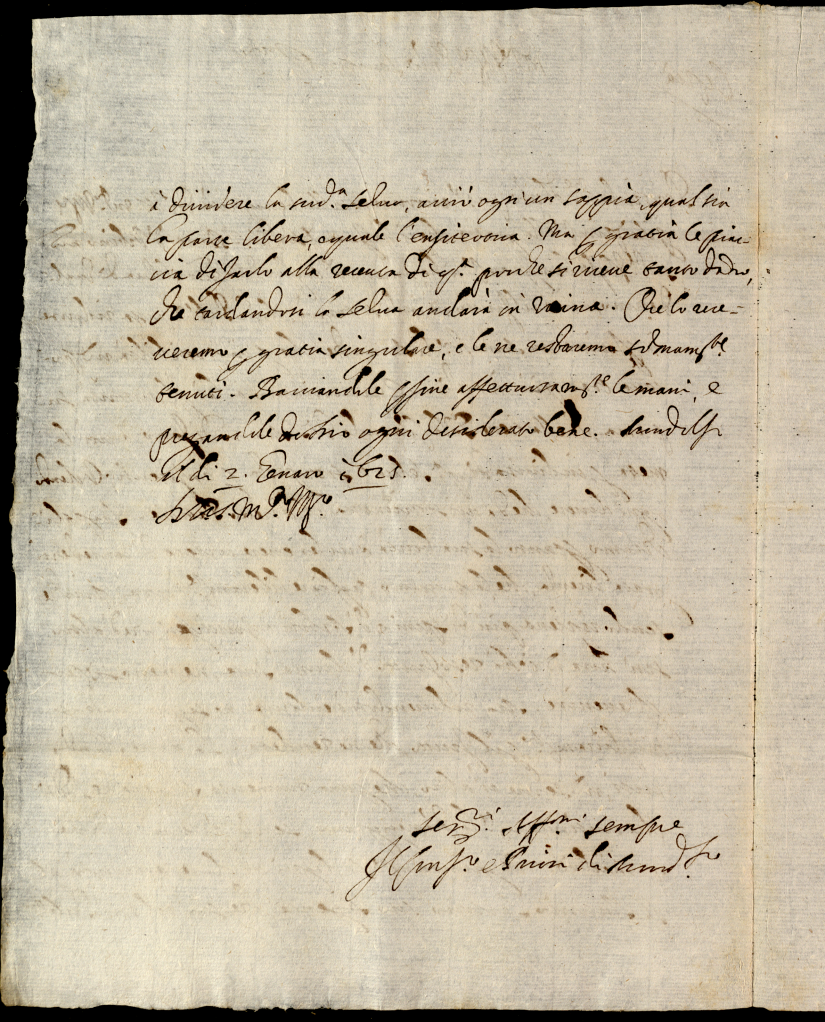 à dividere la sud.ª selva, acciò ogn'un sappia, qual sia
la parte libera, e quale l'enfiteotica. Ma p gratia le piac-
cia di farlo alla recevuta di q.ª perche si riceve tanto danno,
che tardandosi la selva andarà in ruina. Che lo rice-
veremo p gratia singulare, e le ne restaremo som.te
tenuti. Basciandole p fine affettuosam.te le mani, e
pregandole da Dio ogni desiderato bene.
Il di 2. Genaro 1625.
ser.ri Aff.mi sempre
Il e Priori di